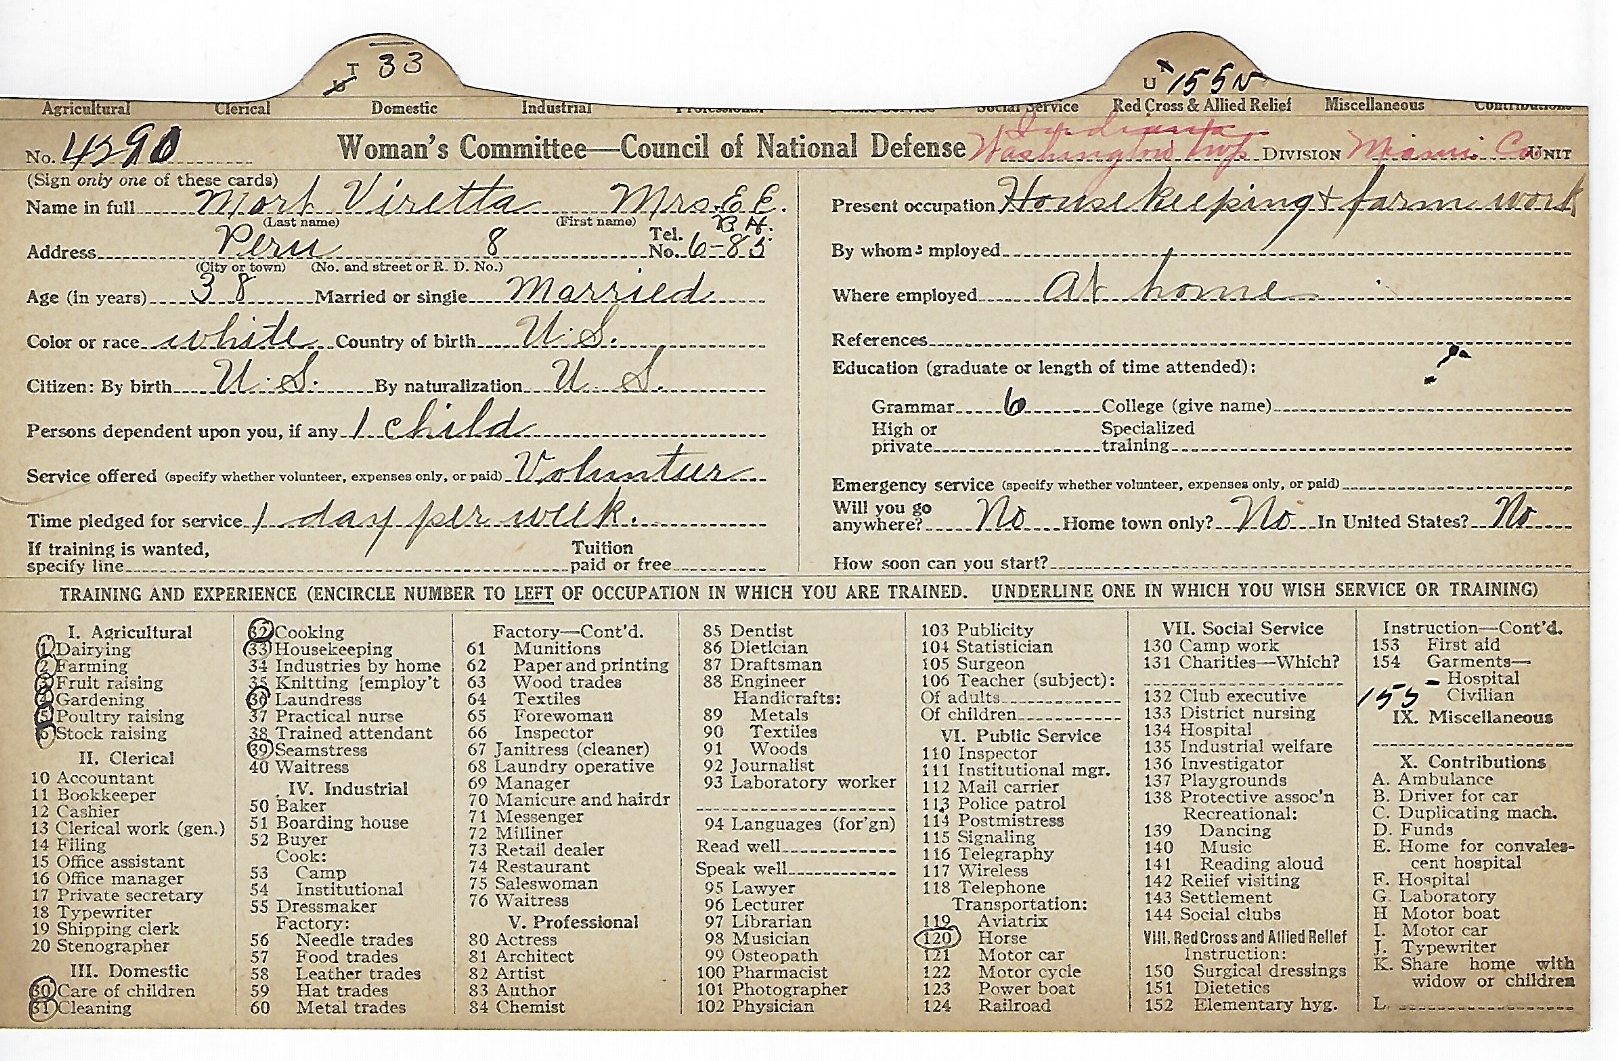 T 33
U 155N
Agricultural Clerical Domestic Industrial Professional Social Service Red Cross & Allied Relief Miscellaneous Contributions
No. 4290 Woman's Committee—Council of National Defense Indiana Washington Twp DIVISION Miami Co UNIT
(Sign only one of these cards)
Name in full Mort Viretta Mrs. E E.
(Last name) (First name)
Address Peru 8 Tel. No. 6-85
(City or town) (No. and street or R. D. No.)
Age (in years) 38 Married or single Married
Color or race white Country of birth U. S.
Citizen: By birth U. S. By naturalization U. S.
Persons dependent upon you, if any 1 child
Service offered (specify whether volunteer, expenses only, or paid) Volunteer
Time pledged for service 1 day per week.
If training is wanted, specify line Tuition paid or free
Present occupation Housekeeping & farm work
By whom employed
Where employed at home
References
Education (graduate or length of time attended):
Grammar 6 College (give name)
High or private Specialized training
Emergency service (specify whether volunteer, expenses only, or paid)
Will you go anywhere? No Home town only? No In United States? No
How soon can you start?
TRAINING AND EXPERIENCE (ENCIRCLE NUMBER TO LEFT OF OCCUPATION IN WHICH YOU ARE TRAINED. UNDERLINE ONE IN WHICH YOU WISH SERVICE OR TRAINING)
I. Agricultural
1 Dairying
2 Farming
3 Fruit raising
4 Gardening
5 Poultry raising
6 Stock raising
II. Clerical
10 Accountant
11 Bookkeeper
12 Cashier
13 Clerical work (gen.)
14 Filing
15 Office assistant
16 Office manager
17 Private secretary
18 Typewriter
19 Shipping clerk
20 Stenographer
III. Domestic
30 Care of children
31 Cleaning
32 Cooking
33 Housekeeping
34 Industries by home
35 Knitting [employ't
36 Laundress
37 Practical nurse
38 Trained attendant
39 Seamstress
40 Waitress
IV. Industrial
50 Baker
51 Boarding house
52 Buyer
Cook:
53 Camp
54 Institutional
55 Dressmaker
Factory:
56 Needle trades
57 Food trades
58 Leather trades
59 Hat trades
60 Metal trades
Factory—Cont'd.
61 Munitions
62 Paper and printing
63 Wood trades
64 Textiles
65 Forewoman
66 Inspector
67 Janitress (cleaner)
68 Laundry operative
69 Manager
70 Manicure and hairdr
71 Messenger
72 Milliner
73 Retail dealer
74 Restaurant
75 Saleswoman
76 Waitress
V. Professional
80 Actress
81 Architect
82 Artist
83 Author
84 Chemist
85 Dentist
86 Dietician
87 Draftsman
88 Engineer
Handicrafts:
89 Metals
90 Textiles
91 Woods
92 Journalist
93 Laboratory worker
94 Languages (for'gn)
Read well
Speak well
95 Lawyer
96 Lecturer
97 Librarian
98 Musician
99 Osteopath
100 Pharmacist
101 Photographer
102 Physician
103 Publicity
104 Statistician
105 Surgeon
106 Teacher (subject):
Of adults
Of children
VI. Public Service
110 Inspector
111 Institutional mgr.
112 Mail carrier
113 Police patrol
114 Postmistress
115 Signaling
116 Telegraphy
117 Wireless
118 Telephone
Transportation:
119 Aviatrix
120 Horse
121 Motor car
122 Motor cycle
123 Power boat
124 Railroad
VII. Social Service
130 Camp work
131 Charities—Which?
132 Club executive
133 District nursing
134 Hospital
135 Industrial welfare
136 Investigator
137 Playgrounds
138 Protective assoc'n
Recreational:
139 Dancing
140 Music
141 Reading aloud
142 Relief visiting
143 Settlement
144 Social clubs
VIII. Red Cross and Allied Relief
Instruction:
150 Surgical dressings
151 Dietetics
152 Elementary hyg.
Instruction—Cont'd.
153 First aid
154 Garments—
Hospital
155 - Civilian
IX. Miscellaneous
X. Contributions
A. Ambulance
B. Driver for car
C. Duplicating mach.
D. Funds
E. Home for convales-
cent hospital
F. Hospital
G. Laboratory
H Motor boat
I. Motor car
J. Typewriter
K. Share home with
widow or children
L.